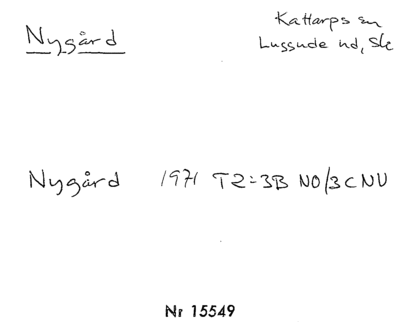 Nygård
Kattarps sn
Luggude hd, Sk
Nygård 1971 T2:3B NO/3C NV
Nr 15549